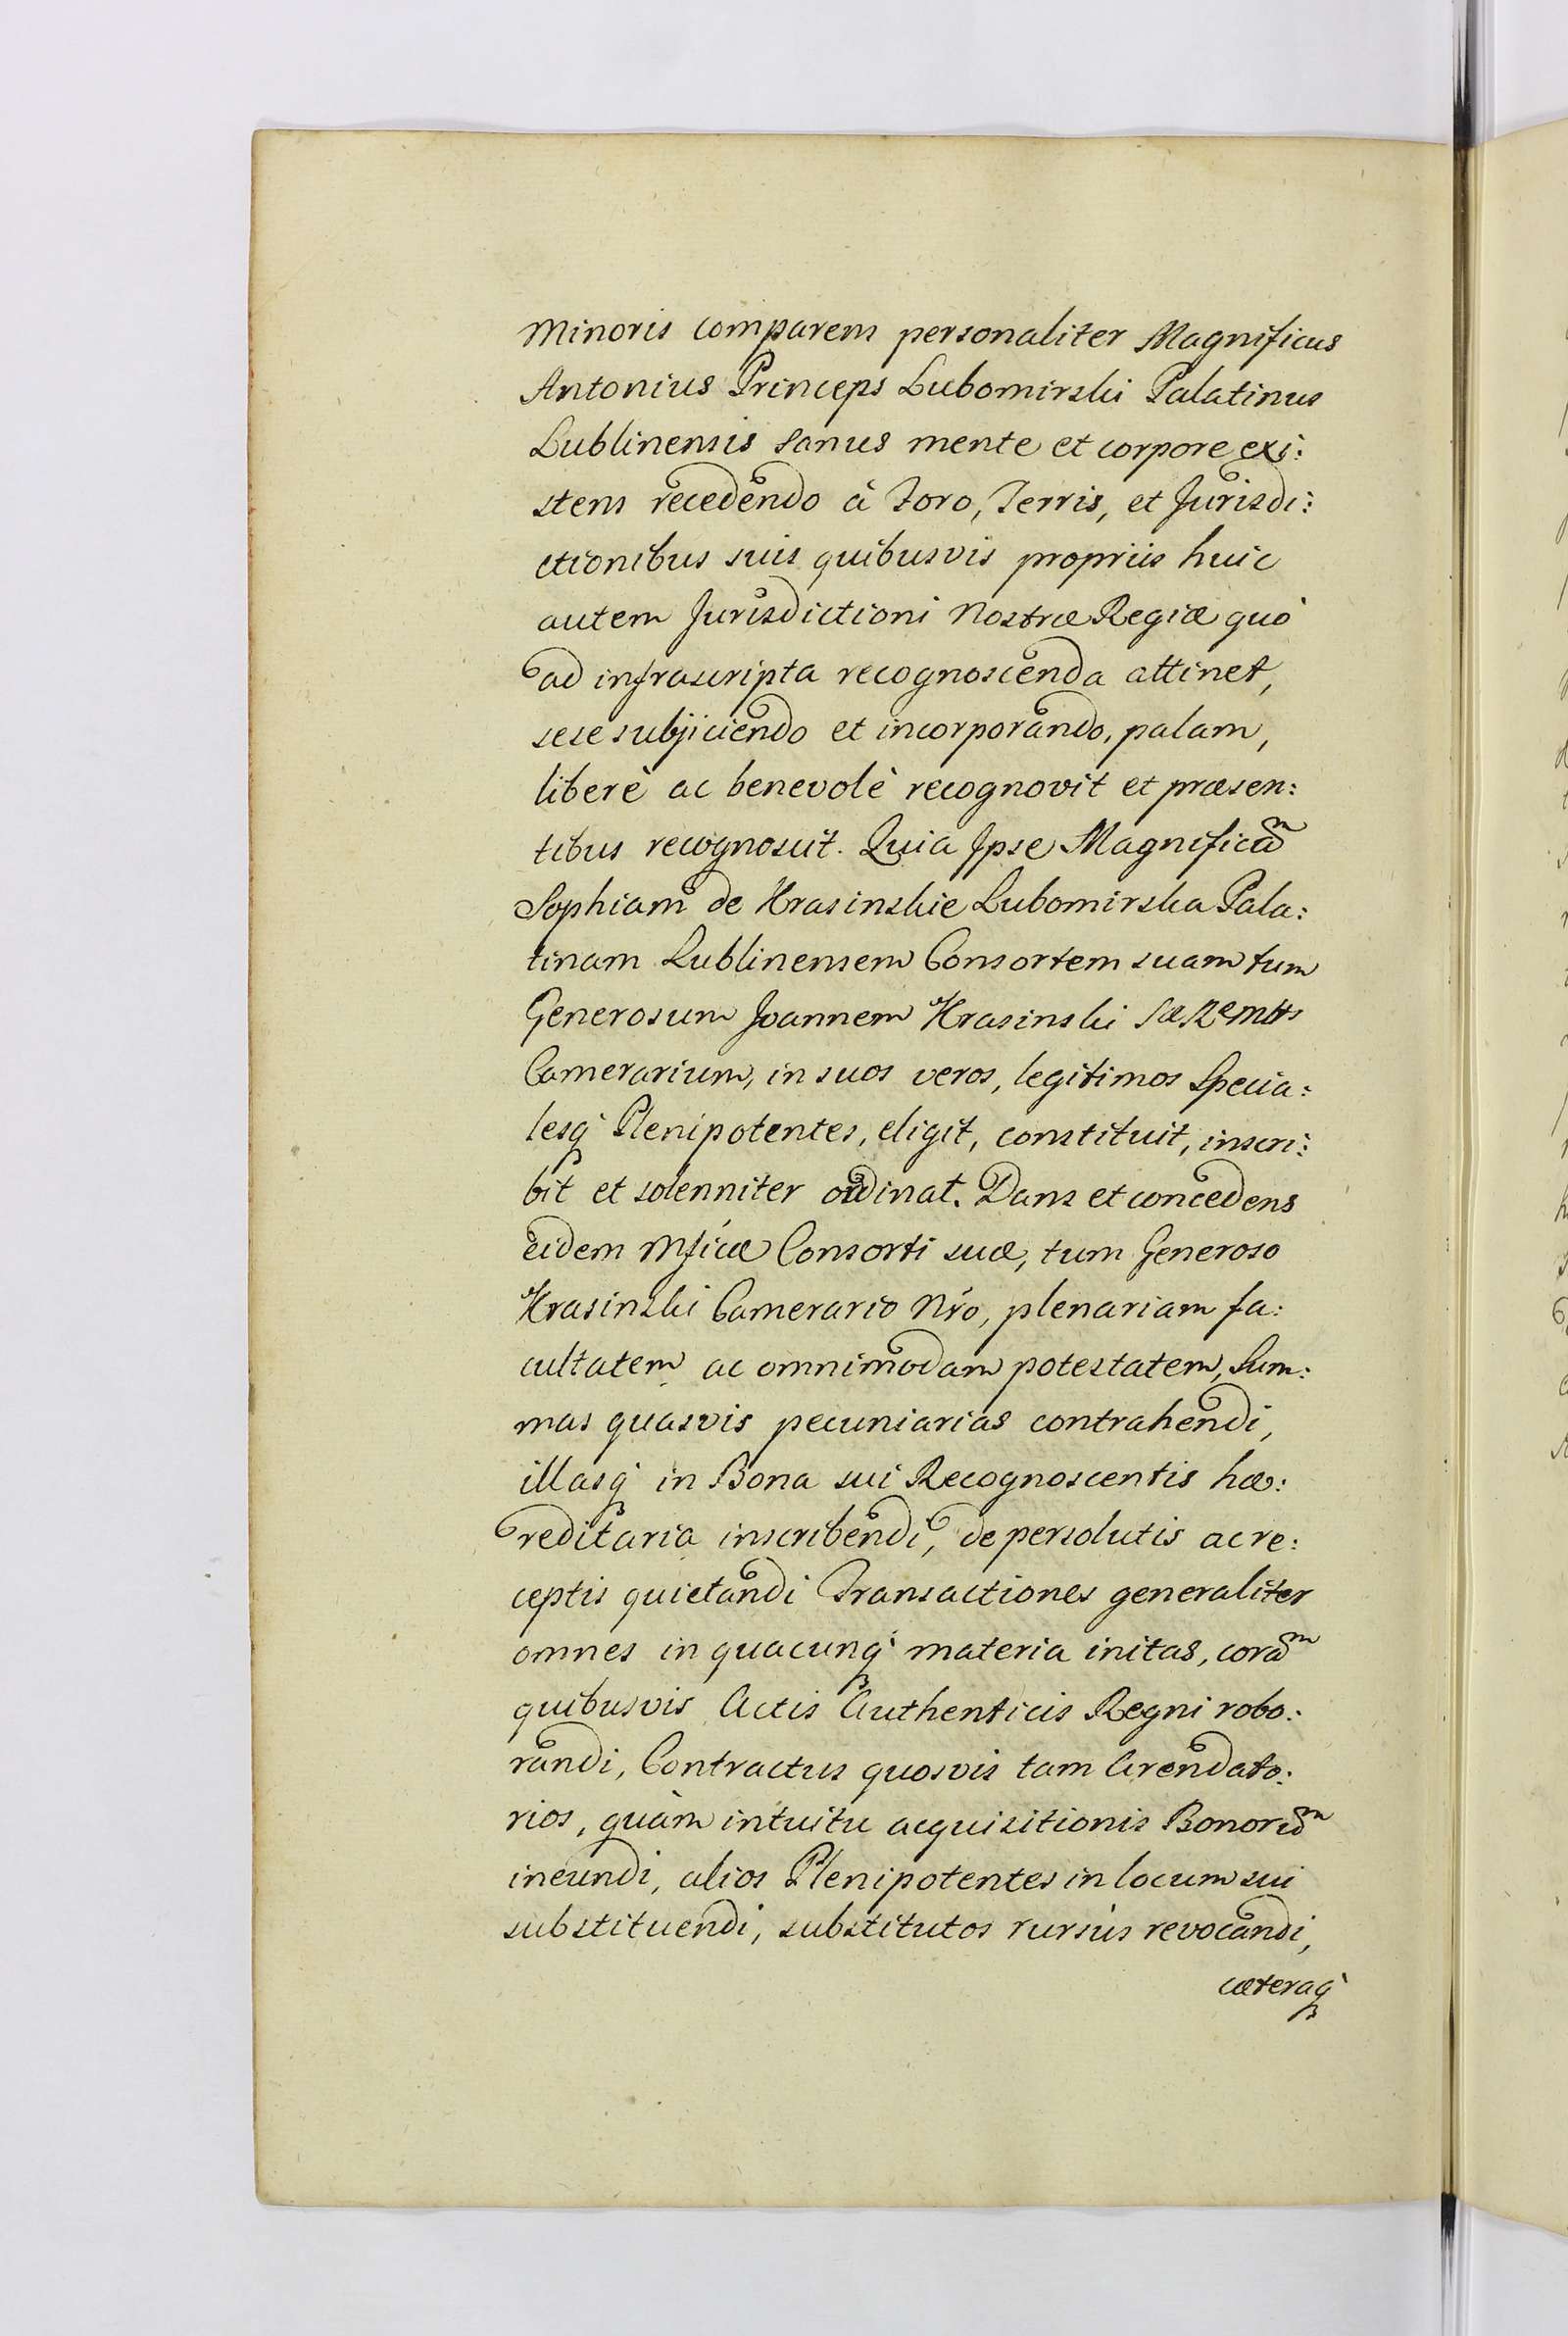 Minoris comparens personaliter Magnificus
Antonius Princeps Lubomirski Palatinus
Lublinensis sanus mente et corpore exi:
stens recedendo à Foro, Terris, et Jurisdi:
ctionibus suis quibusvis propriis huic
autem Jurisdictioni Nostræ Regiæ quò
ad infrascripta recognoscenda attinet,
sese subjiciendo et incorporando, palam,
liberè ac benevolè recognovit et præsen:
tibus recognoscit. Quia Ipse Magnificam
Sophiam de Krasinskie Lubomirska Pala:
tinam Lublinensem Consortem suam tum
Generosum Joannem Krasinski
Camerarium, in suos veros, legitimos Specia:
lesq́ Plenipotentes, eligit, constituit, inscri:
bit et solenniter ordinat. Dans et concedens
eidem Mficæ Consorti suæ, tum Generoso
Krasinski Camerario Nro, plenariam fa:
cultatem ac omnimodam potestatem, Sum:
mas quasvis pecuniarias contrahendi,
illasq́ in Bona sui Recognoscentis hæ:
reditaria inscribendi, de persolutis ac re:
ceptis quietandi Transactiones generaliter
omnes in quacunq́ materia initas, coram
quibusvis Actis Authenticis Regni robo:
randi, Contractus quosvis tam Arendato:
rios, quàm intuitu acquisitionis Bonorum
ineundi, alios Plenipotentes in locum sui
substituendi, substitutos rursùs revocandi,
cæteraq́